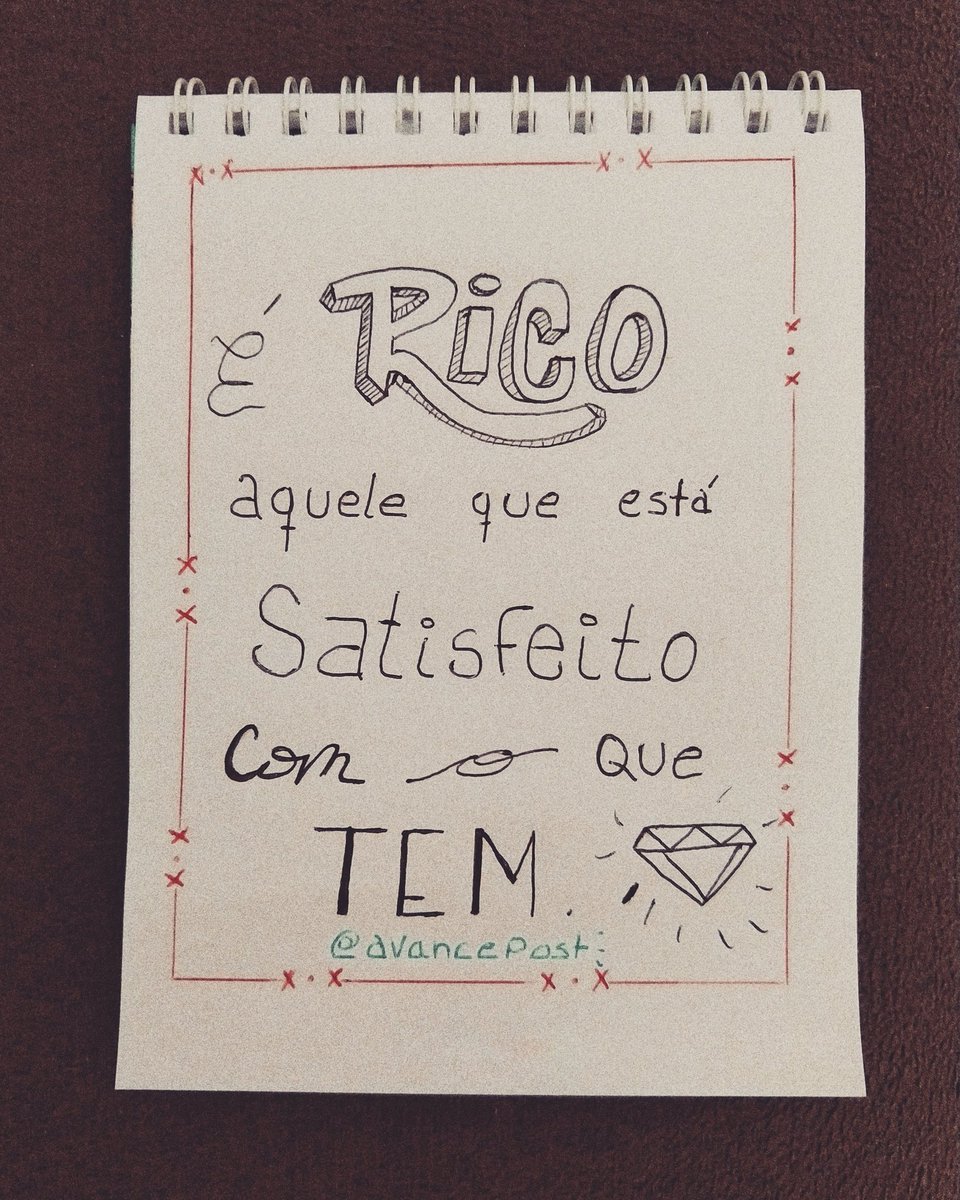 É Rico
aquele que está
Satisfeito
Com o Que
TEM.
@avancepost